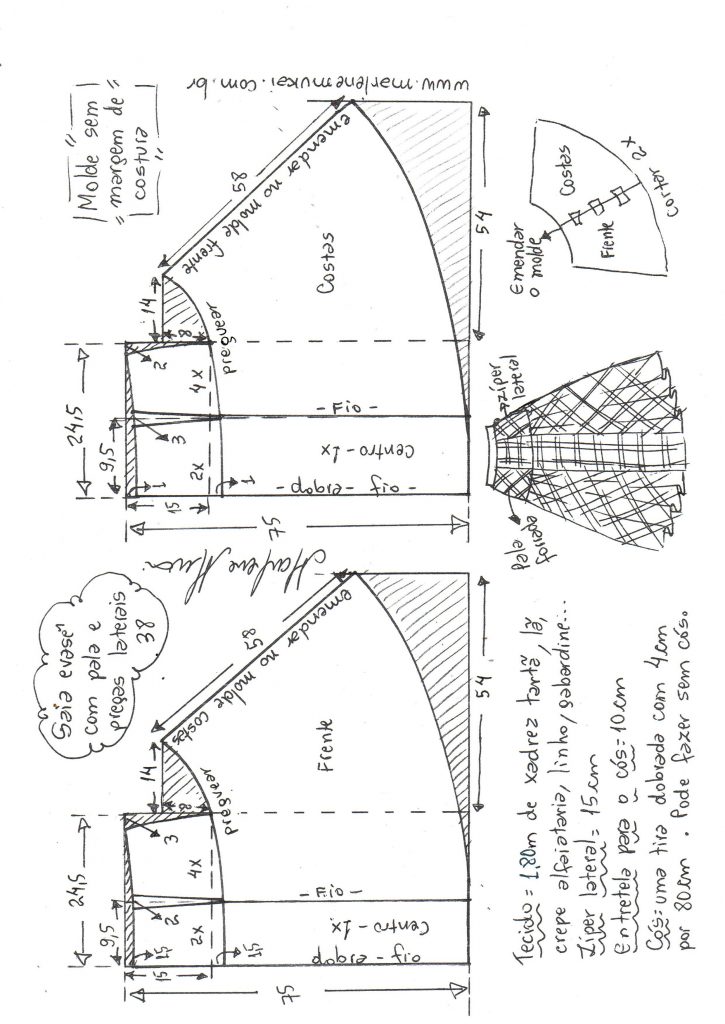 "Molde sem"
"margem de"
costura
www.marlenemukai.com.br
Saia evasê
com pala e
pregas laterais
38
24,5
9,5
14
58
emendar no molde costas
15
1,5
2
3
8
preguear
2x
4x
Frente
- Fio -
Centro - 1x
dobra - fio
1,5
75
54
24,5
9,5
14
58
emendar no molde frente
15
1
3
2
8
preguear
2x
4x
Costas
- Fio -
Centro - 1x
- dobra - fio -
1
75
54
Emendar
o molde
Costas
Frente
Cortar 2x
zíper
lateral
pala
forrada
Tecido = 1,80m de xadrez tartã, lã,
crepe alfaiataria, linho, gabardine...
Zíper lateral = 15cm
Entretela para o cós = 10cm
Cós = uma tira dobrada com 4cm
por 80cm. Pode fazer sem cós.